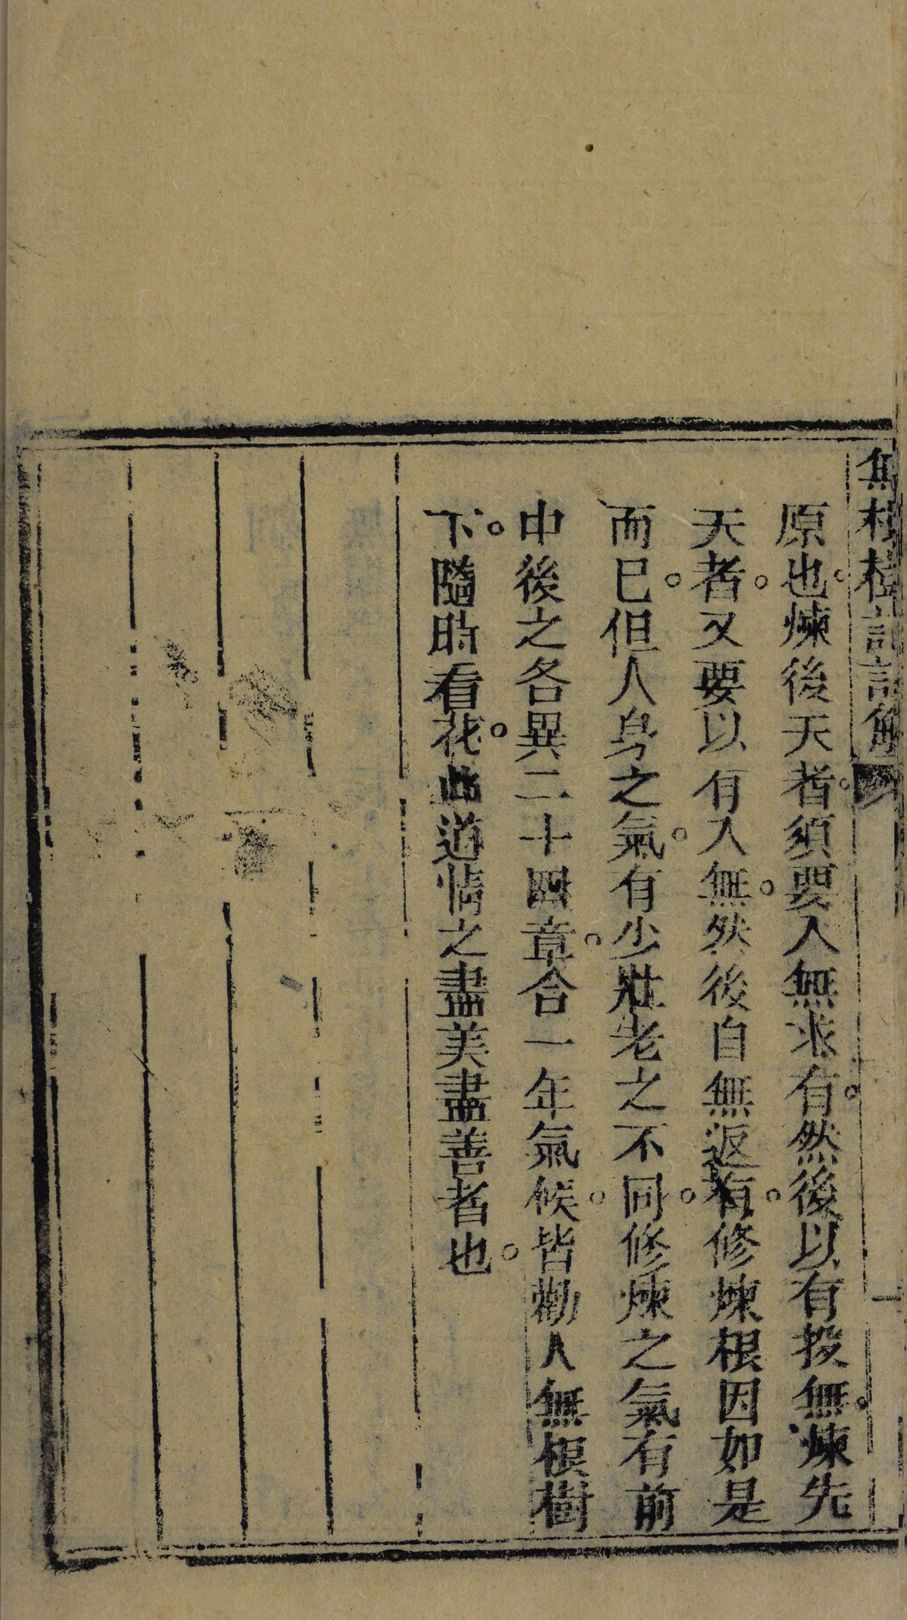 無根樹註詩解
原也。煉後天者。須要入無求有。然後以有投無。煉先
天者。又要以有入無。然後自無返有。修煉根因如是
而已。但人身之氣。有少壯老之不同。修煉之氣有前
中後之各異二十四章。合一年氣候。皆勸人無根樹
下。隨時看花。此道情之盡美盡善者也。